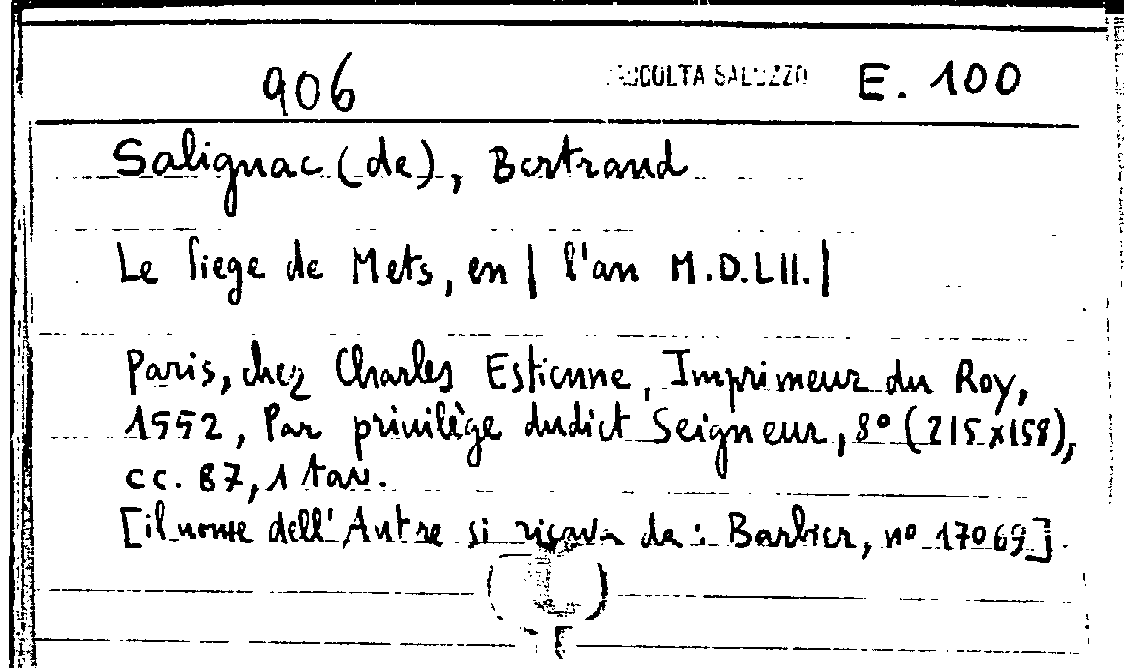 906 RACCOLTA SALUZZO E. 100
Salignac (de), Bertrand
Le siege de Mets, en | l'an M.D.LII. |
Paris, chez Charles Estienne, Imprimeur du Roy,
1552, Par privilège dudict Seigneur, 8° (215x158),
cc. 87, 1 tav.
[il nome dell'Autre si ricava da: Barbier, n° 17069].